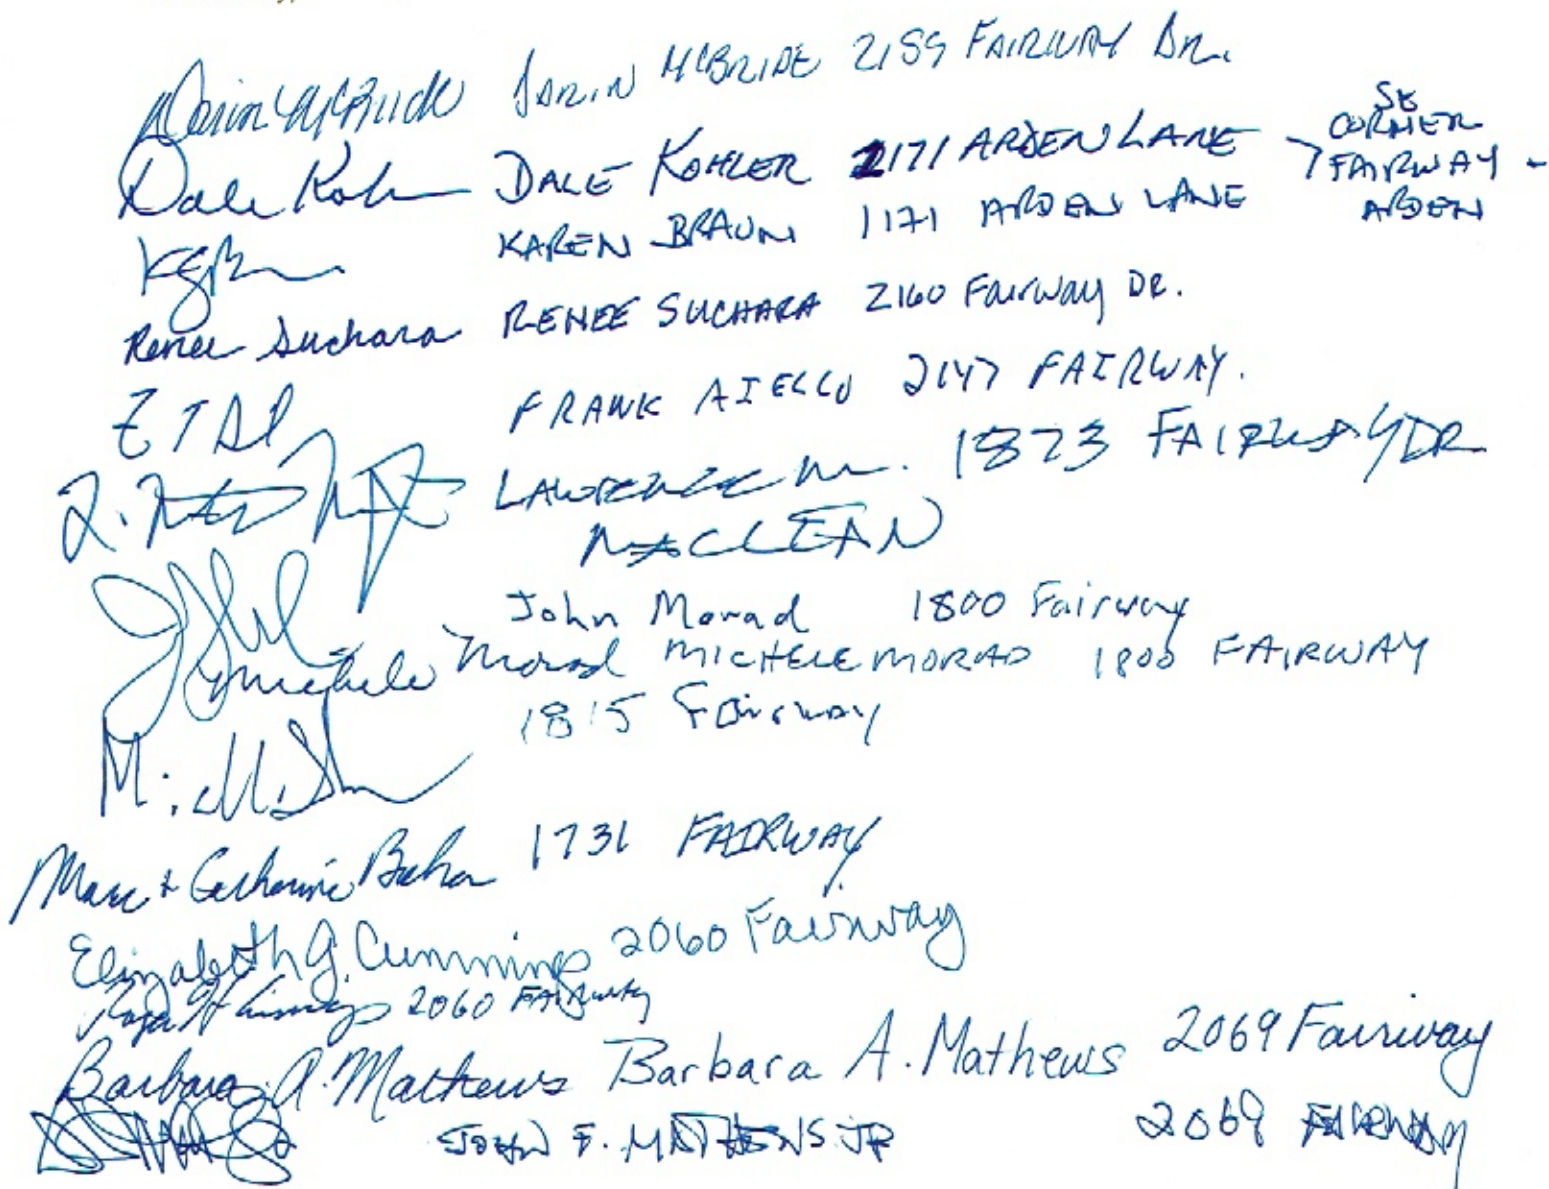 Darin McBride DARIN MCBRIDE 2159 FAIRWAY DR.
Dale Kohler DALE KOHLER 1171 ARDEN LANE SE CORNER FAIRWAY - ARDEN
KAREN BRAUN 1171 ARDEN LANE
Renee Suchara RENEE SUCHARA 2160 FAIRWAY DR.
FRANK AIELLO 2147 FAIRWAY.
LAWRENCE M. 1873 FAIRWAY DR
MACLEAN
John Morad 1800 Fairway
Michele Morad MICHELE MORAD 1800 FAIRWAY
1815 Fairway
Marc + Catherine 1731 FAIRWAY
Elizabeth G. Cummings 2060 Fairway
2060 FAIRWAY
Barbara A. Mathews Barbara A. Mathews 2069 Fairway
JOHN F. MATHEWS JR 2069 FAIRWAY